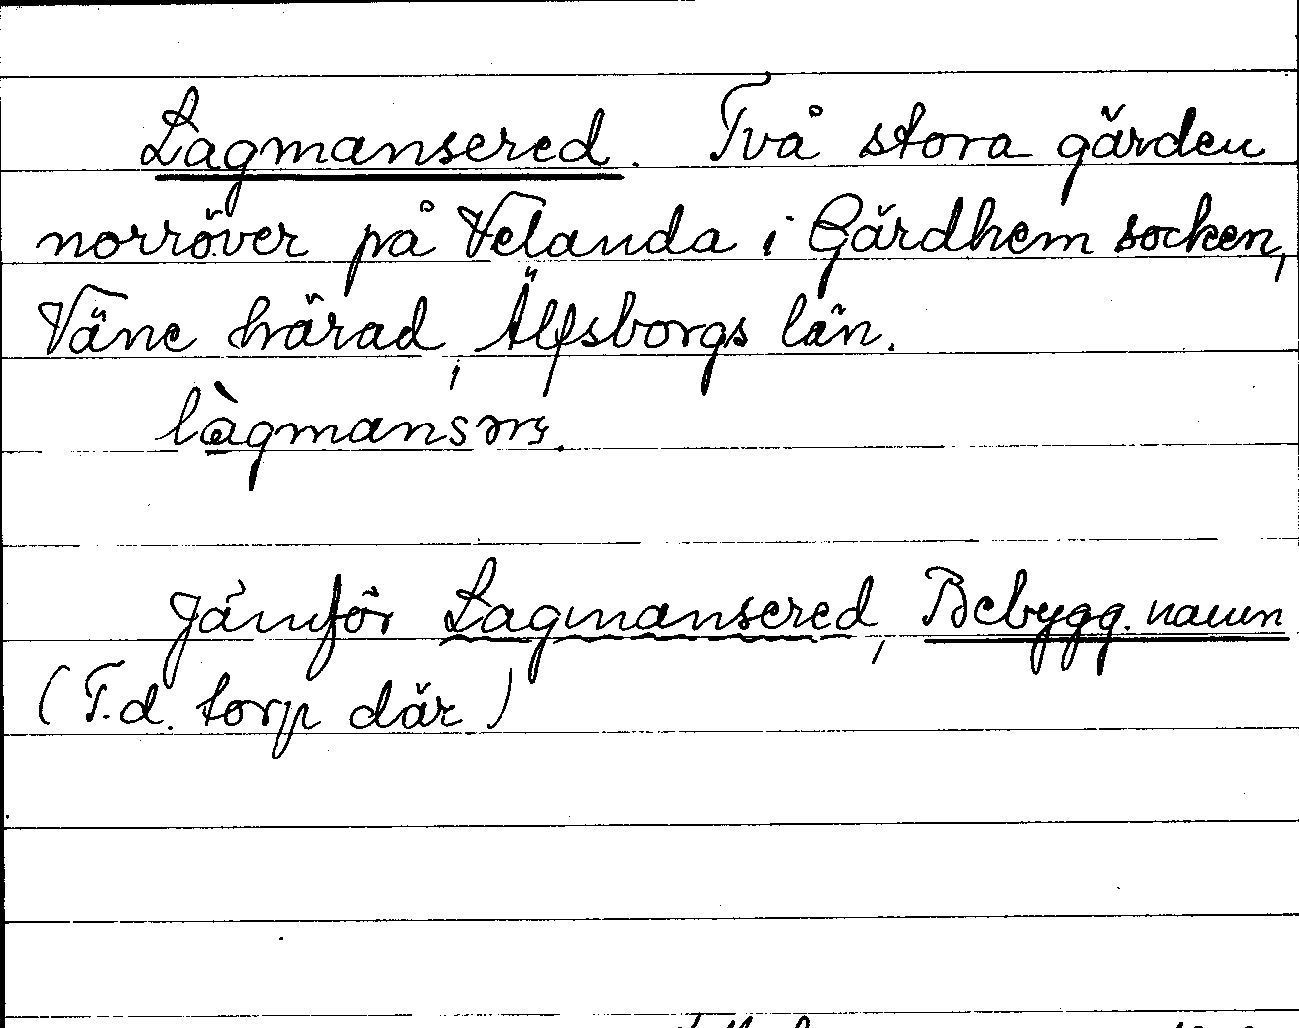 Lagmansered. Två stora gärden
norröver på Velanda i Gärdhem socken,
Väne härad, Älfsborgs län.
Jämför Lagmansered, Bebygg. namn
(F.d. torp där)